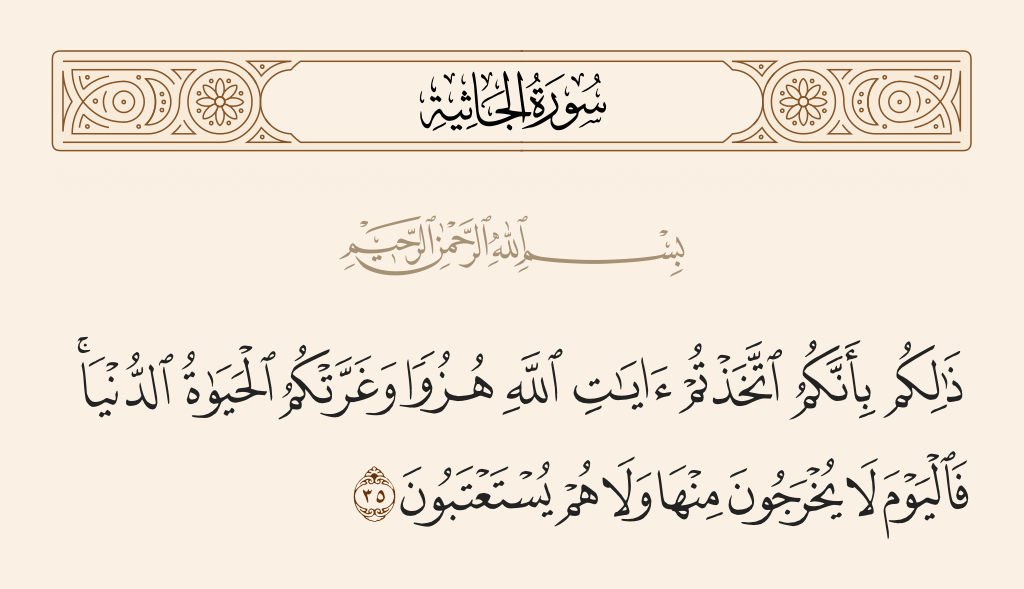 سُورَةُ الجَاثِيَةِ
بِسْمِ ٱللَّهِ ٱلرَّحْمَٰنِ ٱلرَّحِيمِ
ذَٰلِكُم بِأَنَّكُمُ ٱتَّخَذْتُمْ ءَايَٰتِ ٱللَّهِ هُزُوًا وَغَرَّتْكُمُ ٱلْحَيَوٰةُ ٱلدُّنْيَا ۚ
فَٱلْيَوْمَ لَا يُخْرَجُونَ مِنْهَا وَلَا هُمْ يُسْتَعْتَبُونَ ٣٥